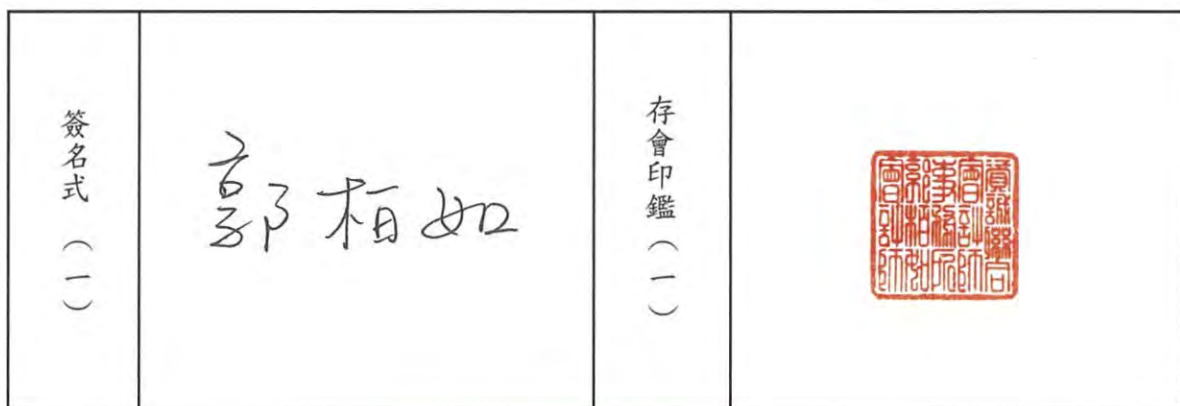 簽名式（一）
郭柏如
存會印鑑（一）
資誠聯合
會計師
事務所
郭柏如
會計師